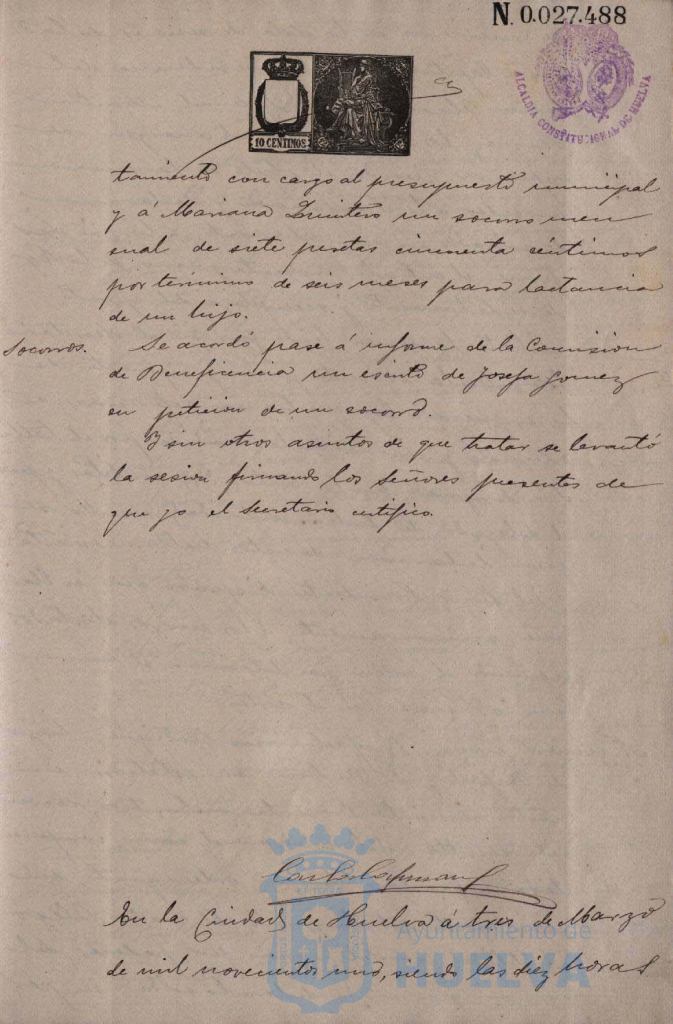 N. 0.027.488
ALCALDIA CONSTITUCIONAL DE HUELVA
10 CENTIMOS
tamiento con cargo al presupuesto municipal
y á Mariana Quintero un socorro men
sual de siete pesetas cincuenta céntimos
por término de seis meses para lactancia
de un hijo.
Socorros.
Se acordó pase á informe de la Comision
de Beneficencia un escrito de Josefa Gomez
en peticion de un socorro.
Y sin otros asuntos de que tratar se levantó
la sesion firmando los Señores presentes de
que yo el Secretario certifico.
En la Ciudad de Huelva á tres de Marzo
de mil novecientos uno, siendo las diez horas
Ayuntamiento de
HUELVA